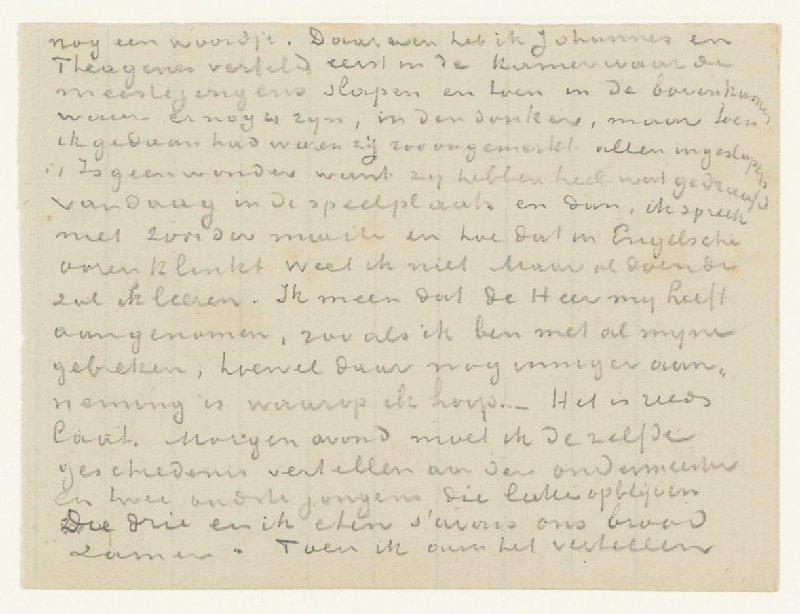 nog een woordje. Daareven heb ik Johannes en
Theagenes verteld eerst in de kamer waar de
meeste jongens slapen en toen in de bovenkamer
waar er nog 2 zijn, in den donker, maar toen
ik gedaan had waren zij zoo ongemerkt allen ingeslapen
Is geen wonder want zy hebben heel wat gedraafd
vandaag in de speelplaats en dan, ik spreek
niet zonder moeite en hoe dat in Engelsche
ooren klinkt weet ik niet Maar al doende
zal ik leeren. Ik meen dat de Heer my heeft
aangenomen, zoo als ik ben met al myne
gebreken, hoewel daar nog inniger aan„
neming is waarop ik hoop.— Het is reeds
laat. Morgen avond moet ik dezelfde
geschiedenis vertellen aan den ondermeester
en twee oudste jongens die later opblijven
Die drie en ik eten s'avons ons brood
zamen. Toen ik aan het vertellen